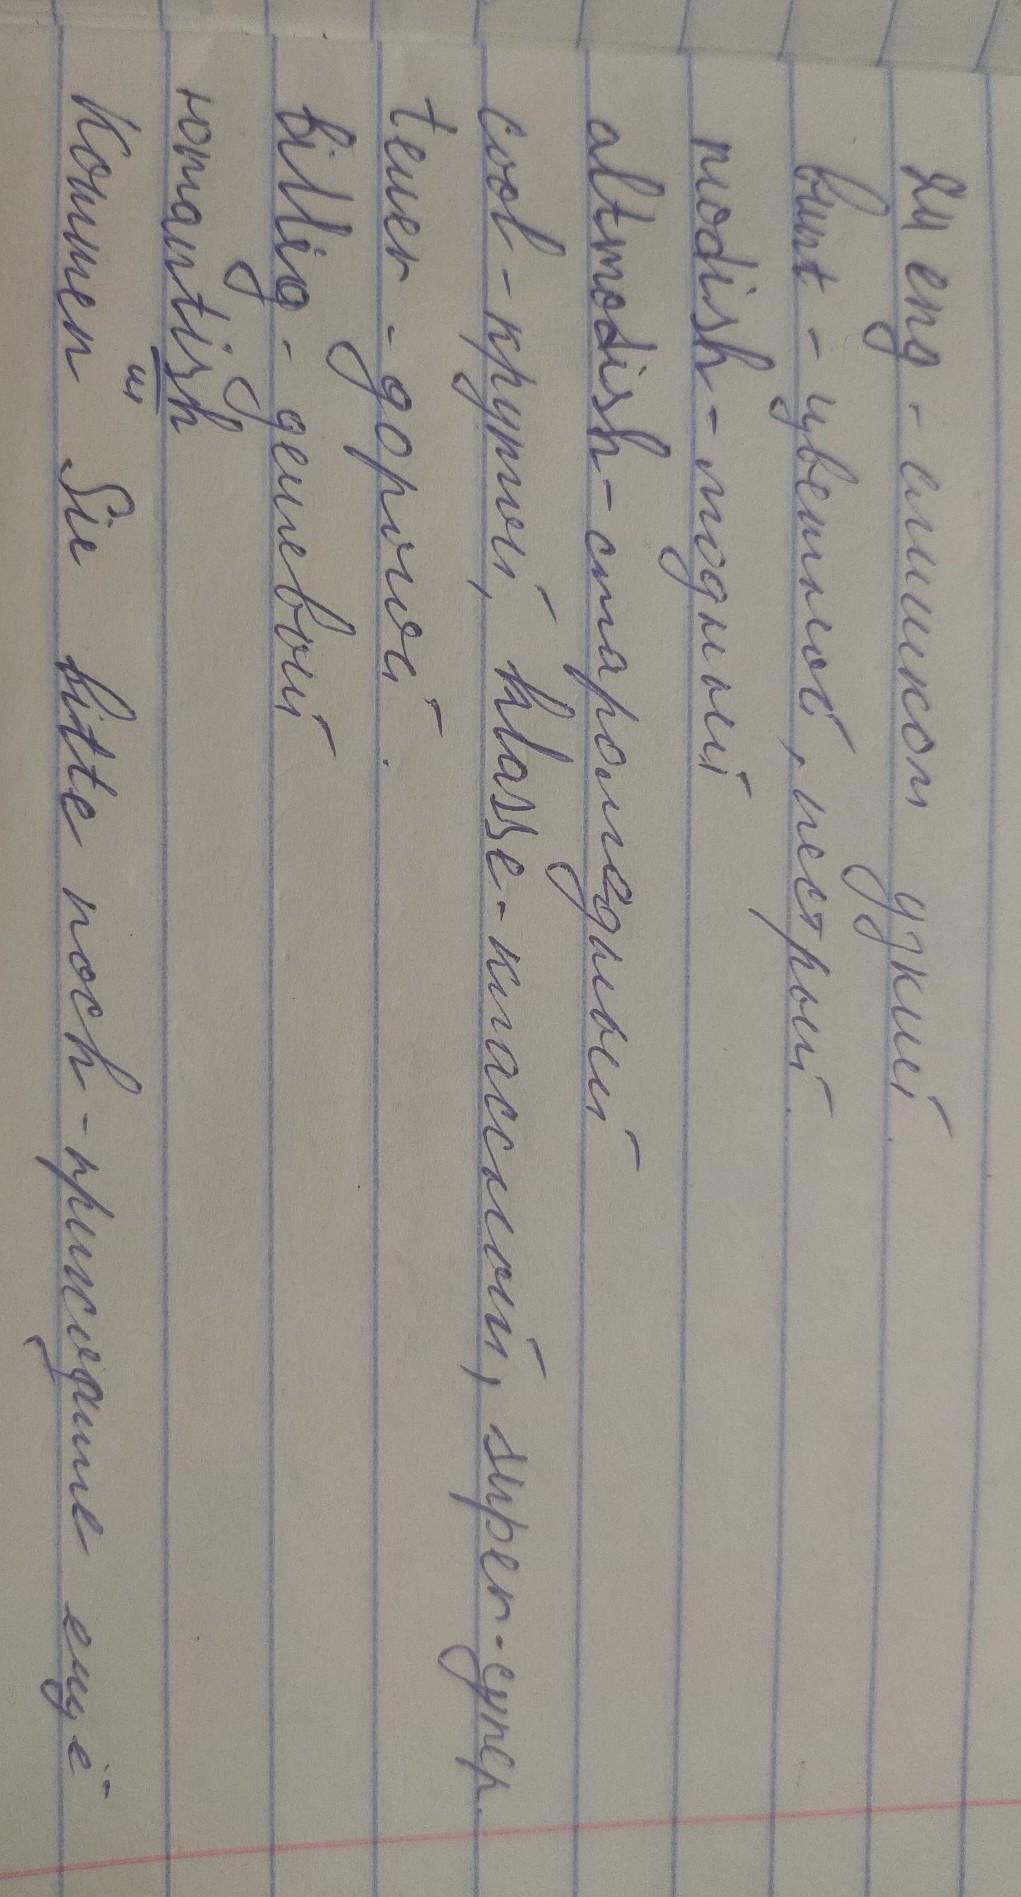 zu eng - слишком узкий
bunt - цветной, пестрый
modish - модный
altmodish - старомодный
cool - крутой, klasse - классный, super - супер.
teuer - дорогой.
billig - дешевый
romantish
ш
Kommen Sie bitte noch - приходите ещё